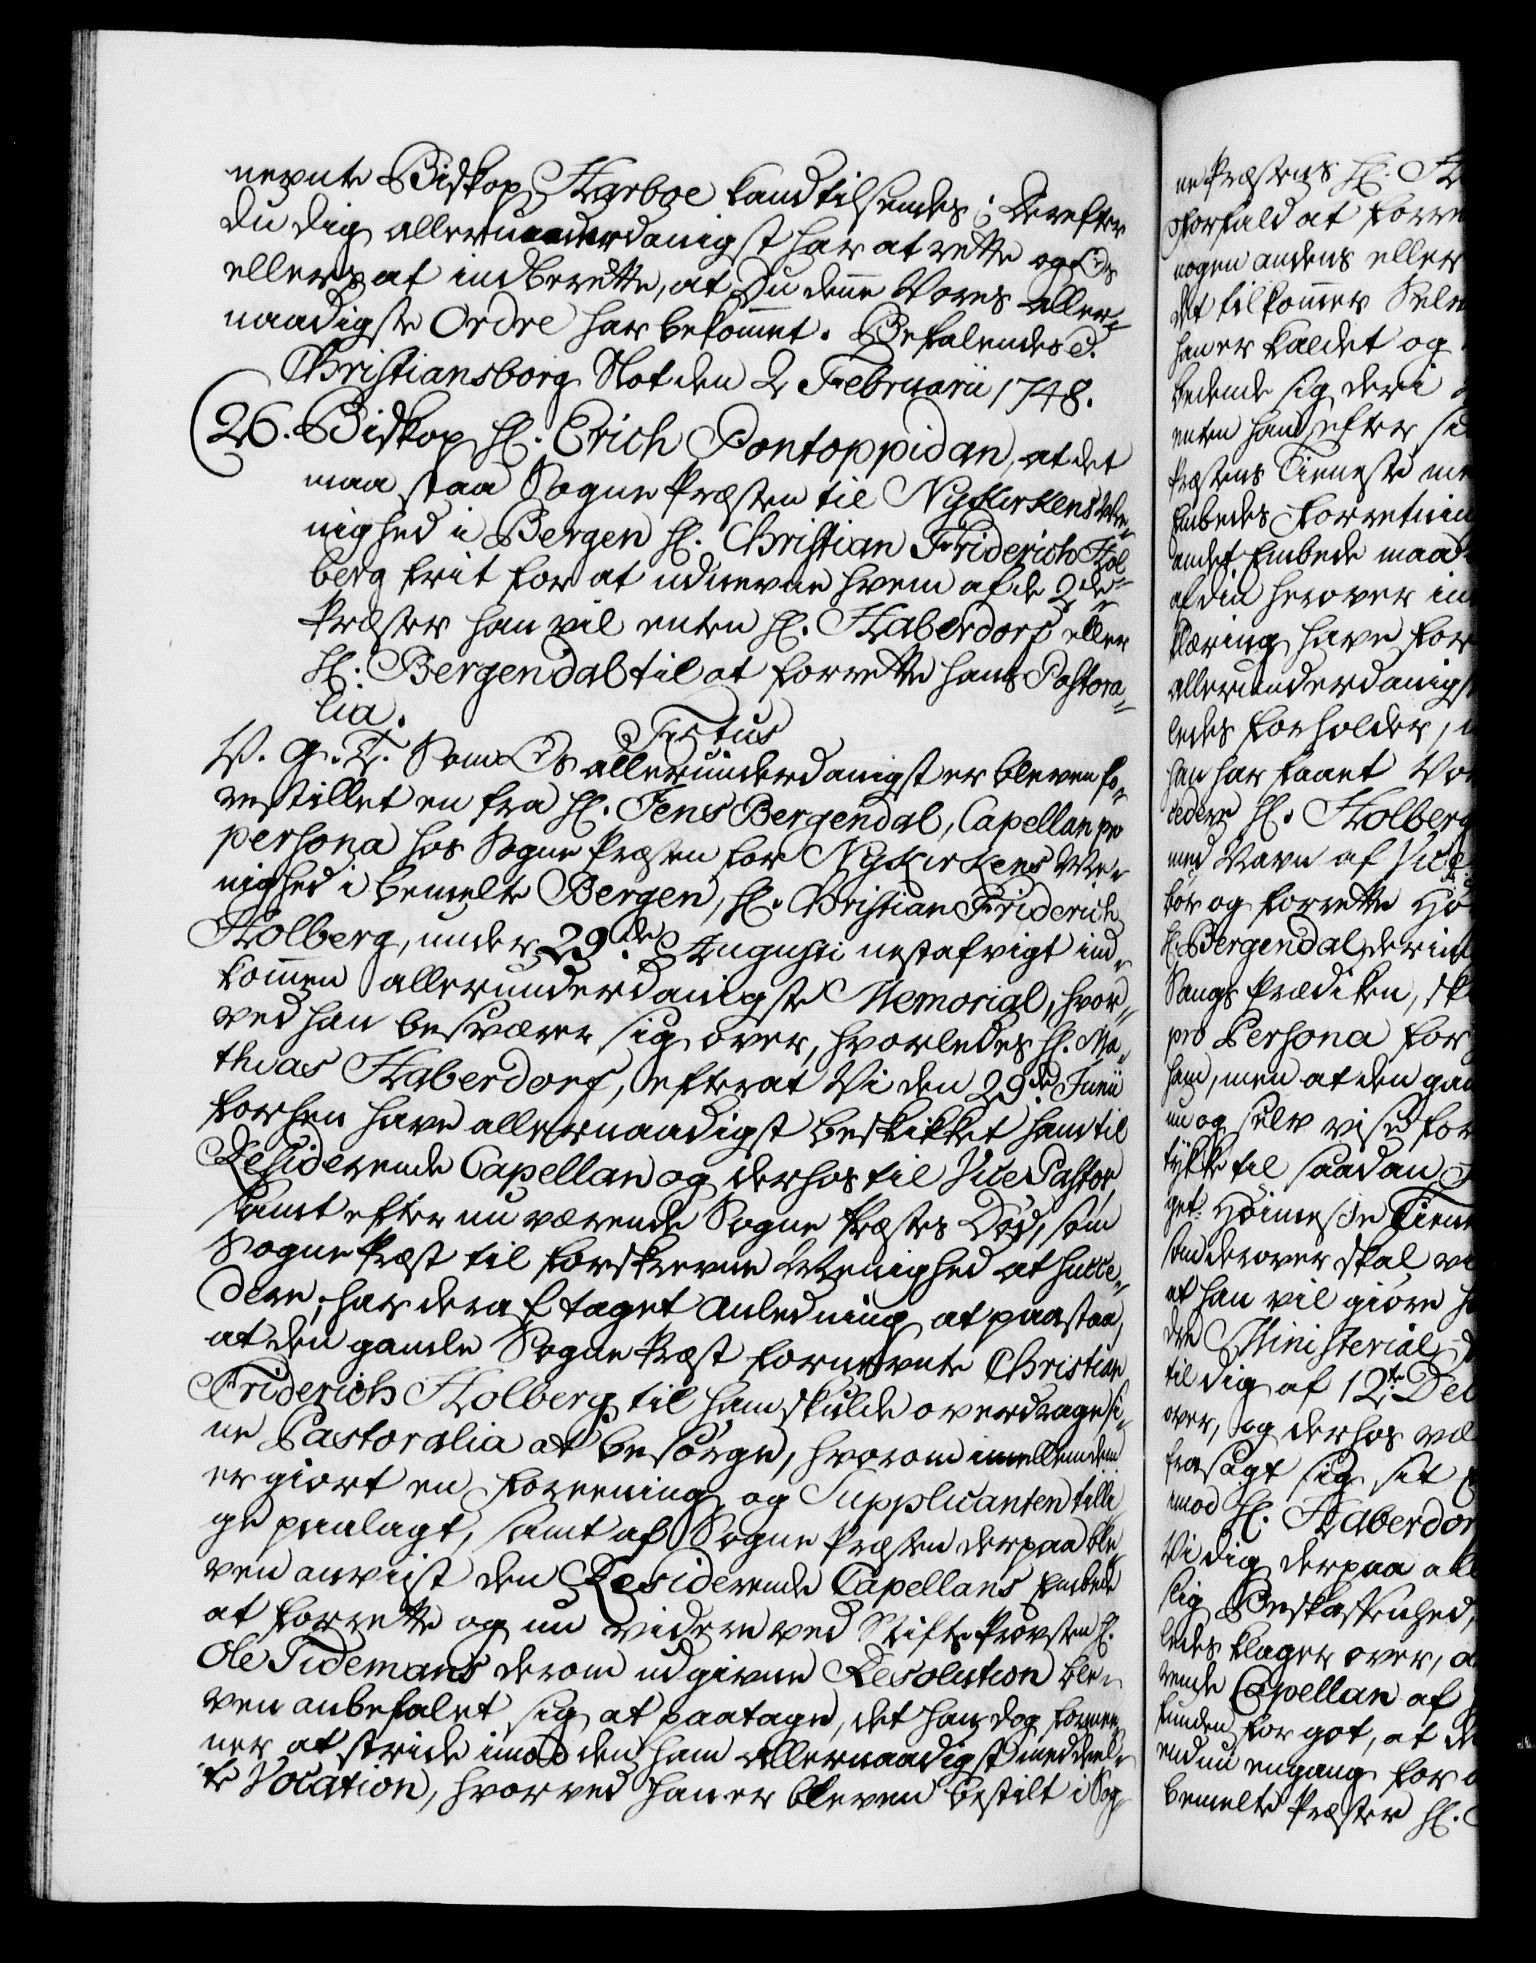 nevnte Biskop Harboe kand tilsendes; Derefter
du dig allerunderdanigst har at rette og Os
ellers at indberette, at Du denne Vores aller-
naadigste Ordre har bekommet. Befalendes d.
Christiansborg Slot den 2 Februarii 1748.
26. Biskop Hr. Erich Pontoppidan, at det
maa staa Sogne Præsten til Nykirkens Me-
nighed i Bergen Hr. Christian Friderich Hol-
berg frit for at udnevne hvem af de 2de
Præster han vil enten Hr. Haberdorf eller
Hr. Bergendal til at forrette hans Pastora-
lia.
Fr 5tus
V. G. T. Som Os allerunderdanigst er bleven fo-
restillet en fra Hr. Jens Bergendal, Capellan pro
persona hos Sogne Præsten for Nykirkens Me-
nighed i bemelte Bergen, Hr. Christian Friderich
Holberg, under 29de Augusti nestafvigt ind-
kommen allerunderdanigste Memorial, hvor-
ved han besværer sig over, hvorledes Hr. Ma-
thias Haberdorf, efterat Vi den 29de Junii
forhen have allernaadigst beskikket ham til
Residerende Capellan og derhos til Vice Pastor,
samt efter nu værende Sogne Præstes Død, som
Sogne Præst til forskrevne Menighed at succe-
dere, har deraf taget Anledning at paastaa,
at den gamle Sogne Præst fornevnte Christian
Friderich Holberg til ham skulde overdrage si-
ne Pastoralia at besørge, hvorom imellem dem
er giort en Foreening og Supplicanten tilli-
ge paalagt, samt af Sogne Præsten derpaa ble-
ven anviist den Residerende Capellans Embede
at forrette og nu videre ved Stifts Provsten Hr.
Ole Tidemans derom udgivne Resolution ble-
ven anbefalet sig at paatage, det han dog formee-
ner at stride imod den ham allernaadigst meddeel-
te Vocation, hvorved han er bleven bestilt i Sog-
ne Præstens Hr. H
Forfald at forre
nogen andens eller
det tilkommer Selv
han er kaldet og
bedende sig deri
enten hand efter si
Præstens Tieneste me
Embedes Forretnin
andet Embede maa
af din herover in
klæring have for
allerunderdanigst
ledes forholder,
han har faaet Vo
cedere Hr. Holberg
med Navn af Vice
bør og forrette Hø
Hr. Bergendal derim
Sangs Prædiken, sk
pro Persona for
ham, men at den gam
nu og selv vise for
tykke til saadan
get Høimesse Tiene
som derover skal ve
at han vil giøre
dre Ministerial
til dig af 12te Dec
over, og derhos vel
frasagt sig sit
imod Hr. Haberdor
Vi dig derpaa alle
lig Beskaffenhed,
ledes klager over, a
rende Capellan af
funden for got, at de
endnu engang for
bemelte Præster Hr.